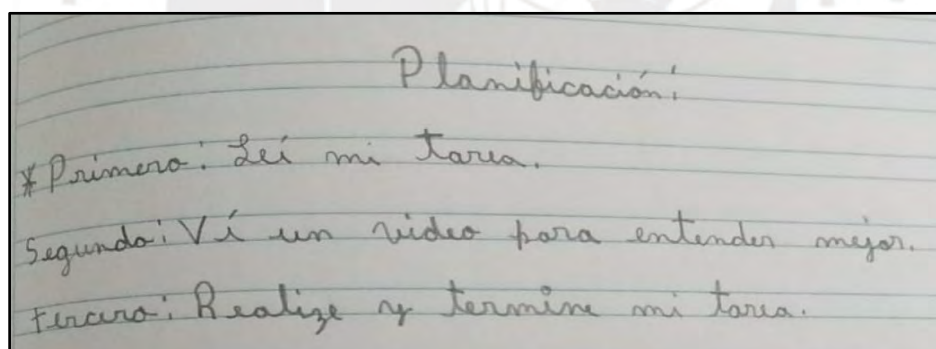 Planificación:
*Primero: Leí mi tarea.
Segundo: Ví un video para entender mejor.
tercero: Realize y termine mi tarea.